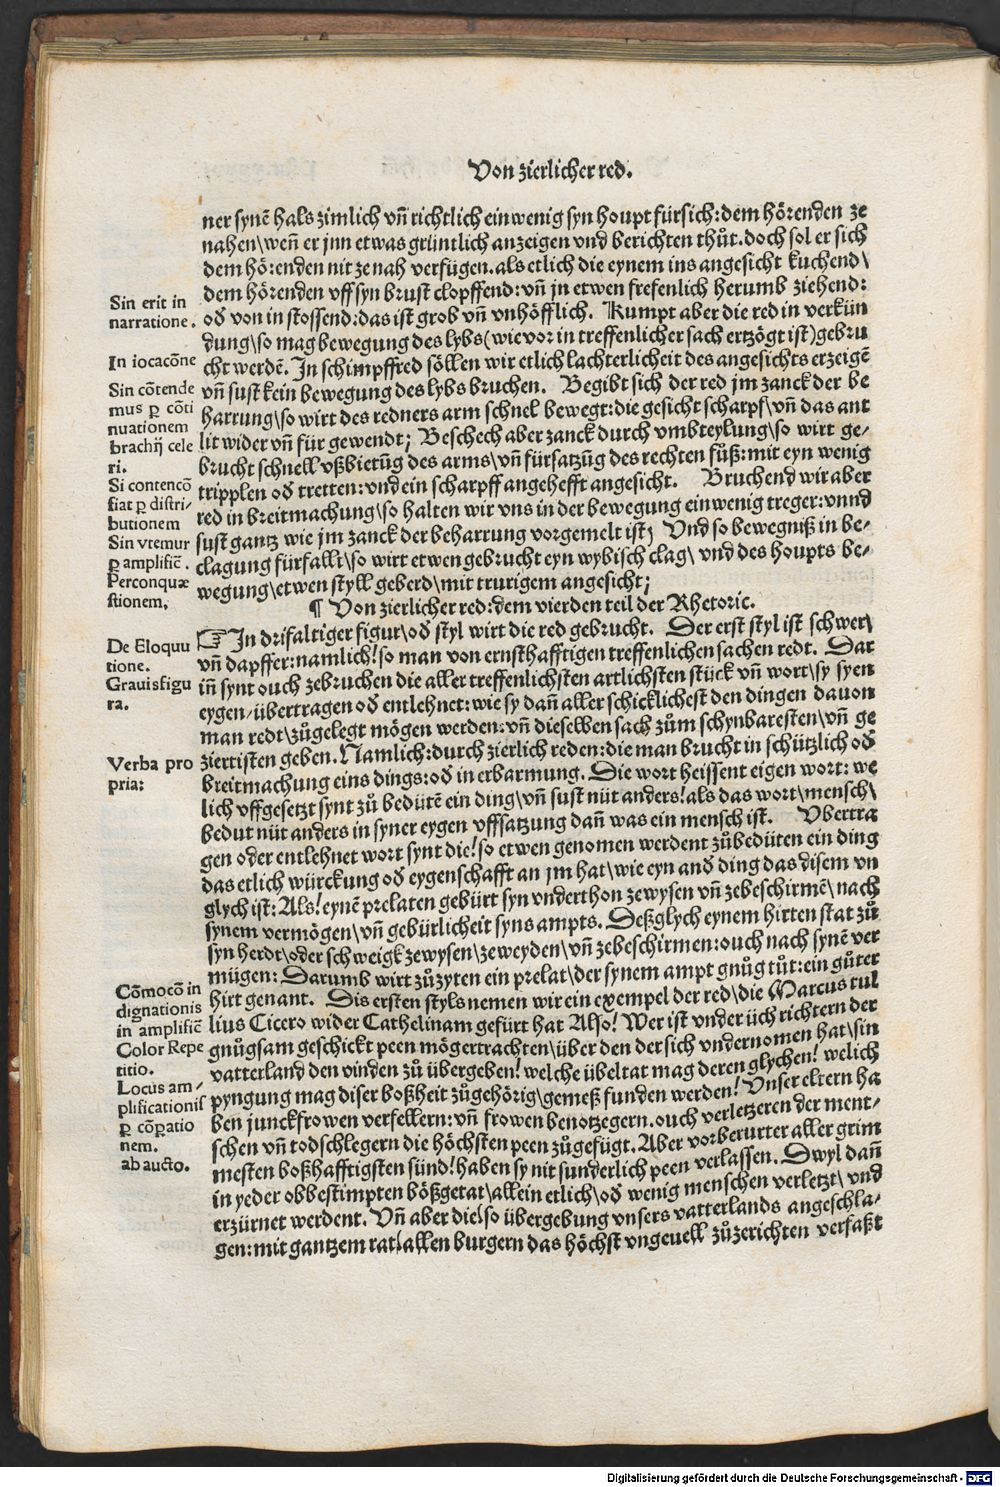 Von zierlicher red.
ner synē hals zimlich vn̄ richtlich ein wenig syn houpt fürsich: dem hörenden ze
nahen\ wen̄ er jnn etwas grüntlich anzeigen vnd berichten thůt. doch sol er sich
dem hörenden nit ze nah verfügen. als etlich die eynem ins angesicht kuchend\
dem hörenden vff syn brust clopffend: vn̄ jn etwen frefenlich herumb ziehend:
od̄ von in stossend: das ist grob vn̄ vnhöfflich. Kumpt aber die red in verkün
dung\ so mag bewegung des lybs (wie vor in treffenlicher sach ertzögt ist) gebru
cht werdē. In schimpffred söllen wir etlich lachterlicheit des angesichts erzeigē
vn̄ sust kein bewegung des lybs bruchen. Begibt sich der red jm zanck der be
harrung\ so wirt des redners arm schnel bewegt: die gesicht scharpf\ vn̄ das ant
lit wider vn̄ für gewendt; Beschech aber zanck durch vmbteylung\ so wirt ge-
brucht schnell vßbietūg des arms\ vn̄ fürsatzūg des rechten fůß: mit eyn wenig
tripplen od̄ tretten: vnd ein scharpff angehefft angesicht. Bruchend wir aber
red in breitmachung\ so halten wir vns in der bewegung ein wenig treger: vnnd
sust gantz wie jm zanck der beharrung vorgemelt ist; Vnd so bewegniß in be-
clagung fürfallt\ so wirt etwen gebrucht eyn wybisch clag\ vnd des houpts be-
wegung\ etwen styll geberd\ mit trurigem angesicht;
¶ Von zierlicher red: dem vierden teil der Rhetoric.
☞ In drifaltiger figur\ od̄ styl wirt die red gebrucht. Der erst styl ist schwer\
vn̄ dapffer: namlich! so man von ernsthafftigen treffenlichen sachen redt. Dar
in̄ synt ouch zebruchen die aller treffenlichsten artlichsten stück vn̄ wort\ sy syen
eygen/ übertragen od̄ entlehnet: wie sy dan̄ aller schicklichest den dingen dauon
man redt\ zůgelegt mögen werden: vn̄ dieselben sach zům schynbaresten\ vn̄ ge
ziertisten geben. Namlich: durch zierlich reden: die man brucht in schützlich od̄
breitmachung eins dings: od̄ in erbarmung. Die wort heissent eigen wort: we
lich vffgesetzt synt zů bedütē ein ding\ vn̄ sust nüt anders! als das wort\ mensch\
bedut nüt anders in syner eygen vffsatzung dan̄ was ein mensch ist. Vbertra
gen oder entlehnet wort synt die! so etwen genomen werdent zůbedüten ein ding
das etlich würckung od̄ eygenschafft an jm hat\ wie eyn and̄ ding das disem vn
glych ist: Als! eynē prelaten gebürt syn vnderthon zewysen vn̄ zebeschirmē\ nach
synem vermögen\ vn̄ gebürlicheit syns ampts. Deßglych eynem hirten stat zů
syn herdt\ oder schweigk zewysen\ zeweyden\ vn̄ zebeschirmen: ouch nach synē ver
mügen: Darumb wirt zůzyten ein prelat\ der synem ampt gnůg tůt: ein gůter
hirt genant. Dis ersten styls nemen wir ein exempel der red\ die Marcus tul
lius Cicero wider Cathelinam gefürt hat Also! Wer ist vnder üch richtern der
gnůgsam geschickt peen mög ertrachten\ über den der sich vndernomen hat\ sin
vatterland den vinden zů übergeben! welche übeltat mag deren glychen! welich
pyngung mag diser boßheit zůgehörig\ gemeß funden werden! Vnser eltern ha
ben junckfrowen verfellern: vn̄ frowen benotzegern. ouch verletzeren der ment-
schen vn̄ todschlegern die höchsten peen zůgefügt. Aber vorberurter aller grim
mesten boßhafftigsten sünd! haben sy nit sunderlich peen verlassen. Dwyl dan̄
in yeder obbestimpten bößgetat\ allein etlich\ od̄ wenig menschen verletzt\ vnd
erzürnet werdent. Vn̄ aber die\ so übergebung vnsers vatterlands angeschla-
gen: mit gantzem rat\ allen burgern das höchst vngeuell zůzerichten verfaßt
Sin erit in
narratione.
In iocacōne
Sin cōtende
mus ꝑ cōti
nuationem
brachij cele
ri.
Si contencō
fiat ꝑ distri-
butionem
Sin vtemur
ꝑ amplifiē.
Perconquæ
stionem.
De Eloquu
tione.
Grauis figu
ra.
Verba pro
pria:
Cōmocō in
dignationis
in amplifiē
Color Repe
titio.
Locus am-
plificationis
ꝑ cōꝑatio
nem.
ab aucto.
Digitalisierung gefördert durch die Deutsche Forschungsgemeinschaft - DFG